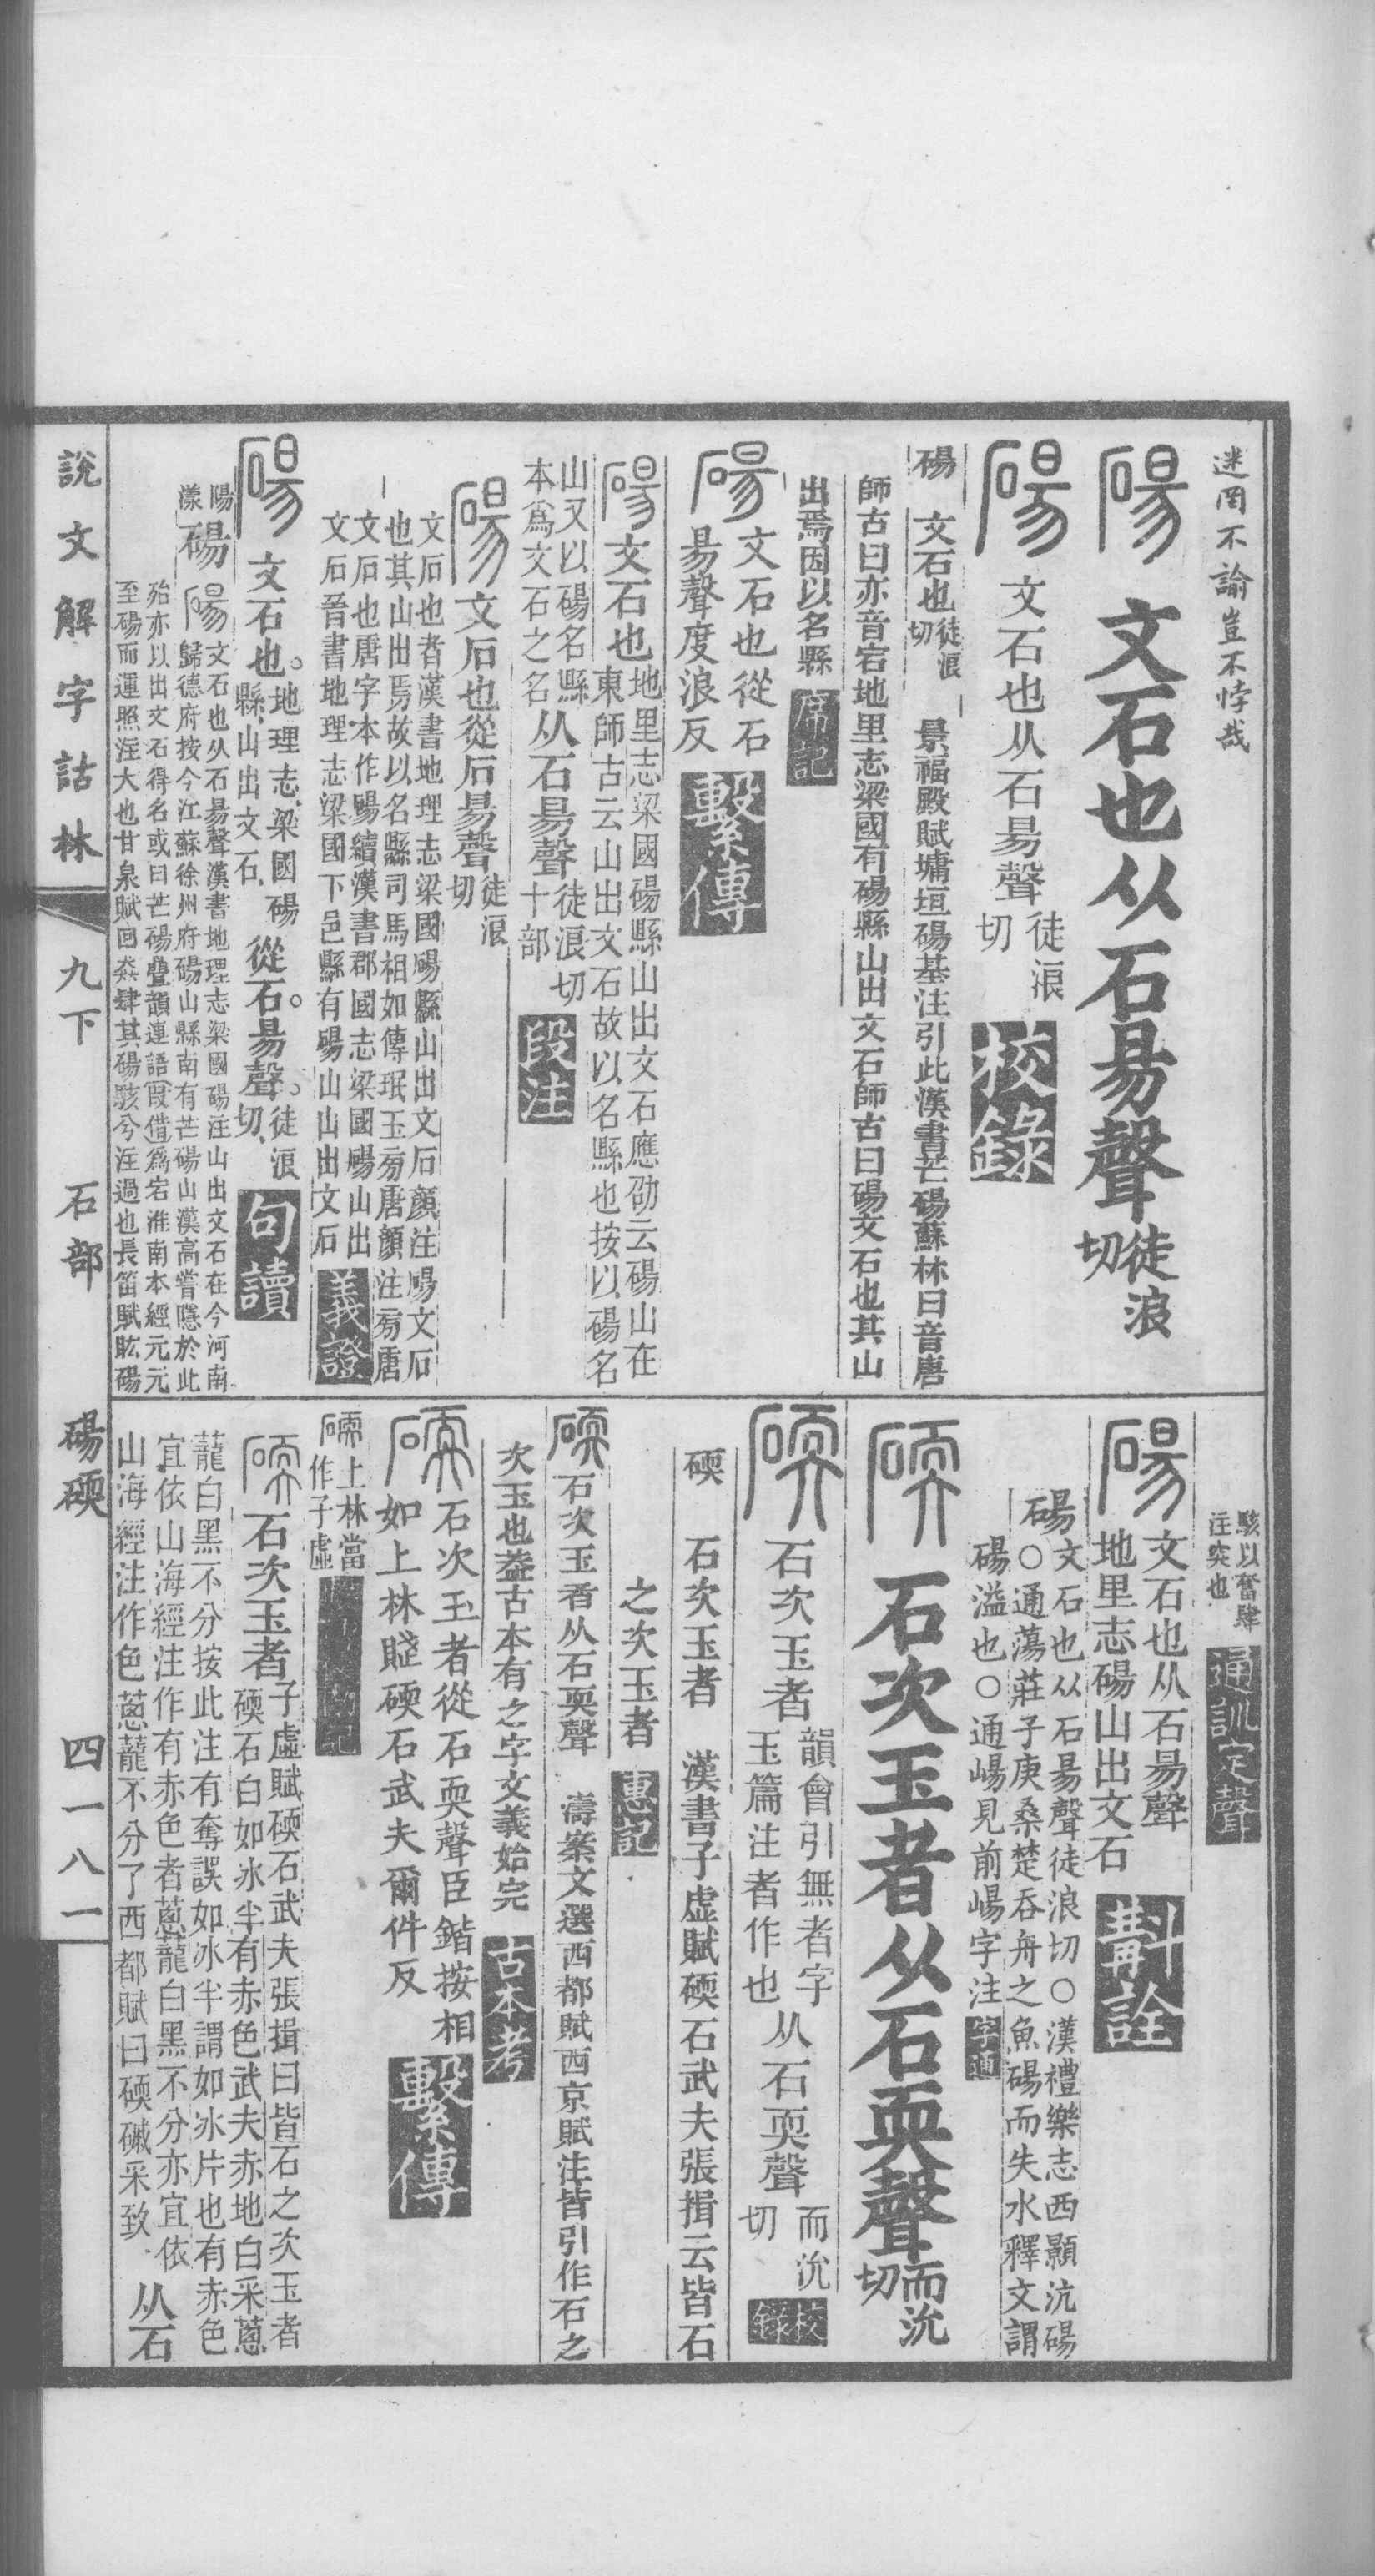 迷罔不諭豈不悖哉
碭 文石也从石昜聲徒浪切
碭 文石也从石昜聲徒浪切 校錄
碭 文石也徒浪切 景福殿賦墉垣碭基注引此漢書芒碭蘇林曰音唐
師古曰亦音宕地里志梁國有碭縣山出文石師古曰碭文石也其山
出焉因以名縣 席記
碭 文石也從石
昜聲度浪反 繫傳
碭 文石也地里志梁國碭縣山出文石應劭云碭山在
東師古云山出文石故以名縣也按以碭名
山又以碭名縣
本爲文石之名从石昜聲徒浪切十部 段注
碭 文石也從石昜聲徒浪切
文石也者漢書地理志梁國碭縣山出文石顏注碭文石
也其山出焉故以名縣司馬相如傳珉玉旁唐顏注旁唐
文石也唐字本作碭續漢書郡國志梁國碭山出
文石晉書地理志梁國下邑縣有碭山山出文石 義證
碭 文石也。地理志、梁國碭縣、山出文石、從石。昜聲。徒浪切、 句讀
陽漾 碭 碭 文石也从石昜聲漢書地理志梁國碭注山出文石在今河南
歸德府按今江蘇徐州府碭山縣南有芒碭山漢高嘗隱於此
殆亦以出文石得名或曰芒碭疊韻連語(叚借)爲宕淮南本經元元
至碭而運照注大也甘泉賦回猋肆其碭駭兮注過也長笛賦眩碭
駭以奮肆
注突也 通訓定聲
碭 文石也从石昜聲
地里志碭山出文石 斠詮
碭文石也从石昜聲徒浪切○漢禮樂志西顥沆碭
○通蕩莊子庚桑楚吞舟之魚碭而失水釋文謂
碭溢也○通崵見前崵字注 字通
碝 石次玉者从石耎聲而沇切
碝 石次玉者韻會引無者字玉篇注者作也从石耎聲而沇切 校錄
碝 石次玉者 漢書子虛賦碝石武夫張揖云皆石
之次玉者 惠記
碝 石次玉者从石耎聲 濤案文選西都賦西京賦注皆引作石之
次玉也葢古本有之字文義始完 古本考
碝 石次玉者從石耎聲臣鍇按相
如上林賦碝石武夫爾件反 繫傳
碝上林當
作子虛
碝 石次玉者子虛賦碝石武夫張揖曰皆石之次玉者
碝石白如冰半有赤色武夫赤地白采蔥
蘢白黑不分按此注有奪誤如冰半謂如冰片也有赤色
宜依山海經注作有赤色者蔥蘢白黑不分亦宜依
山海經注作色蔥蘢不分了西都賦曰碝磩采致、从石
說文解字詁林 九下 石部 碭碝 四一八一